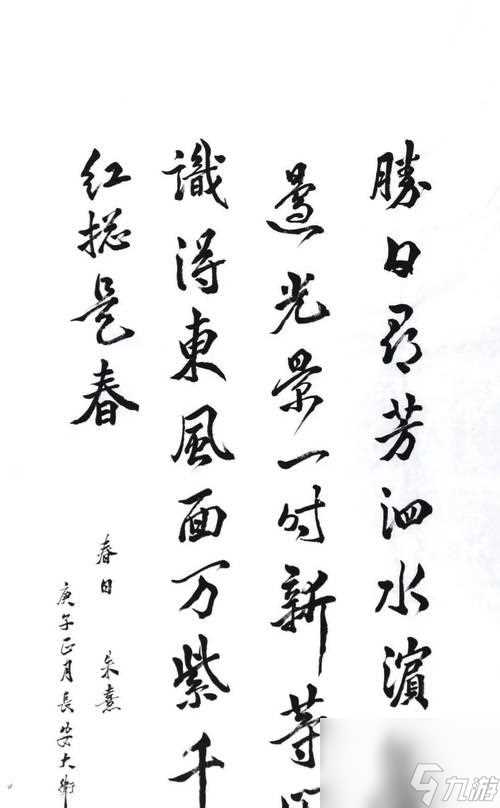 勝日尋芳泗水濱
邊光景一时新等
識得東風面万紫千
红揔是春
春日 朱熹
庚子正月長安大
九游